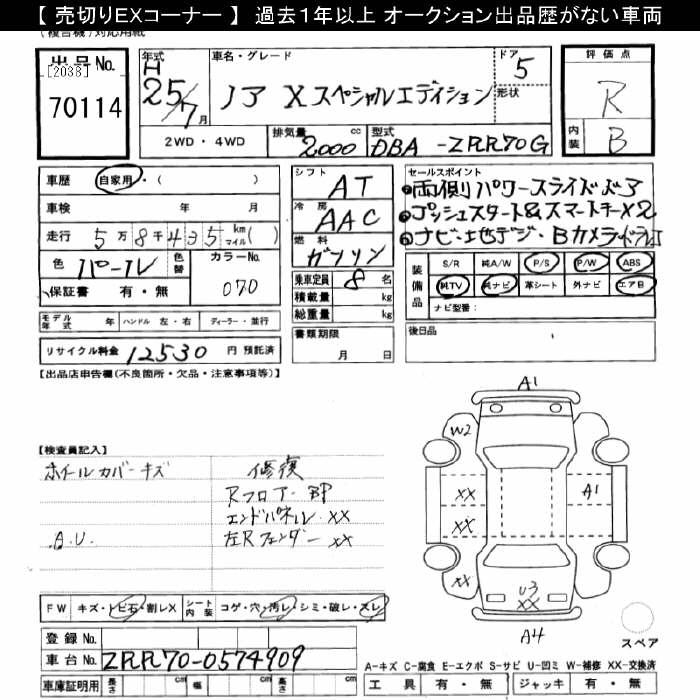 【 売切りEXコーナー 】 過去１年以上 オークション出品歴がない車両
出品No.
[2038]
70114
年式
H
25/7月
車名・グレード
ノア X スペシャルエディション
ドア
5
形状
評価点
R
内装
B
2WD・4WD
排気量
2000
cc
型式
DBA -ZRR70G
車歴
自家用・( )
車検 年 月
走行 5万8千4 3 5 km マイル( )
色 パール 色替
カラーNo.
070
保証書 有・無
モデル年式 年 ハンドル 左・右 ディーラー・並行
リサイクル料金 12530 円 預託済
シフト
AT
冷房
AAC
燃料
ガソリン
乗車定員 8 名
積載量 kg
総重量 kg
書類期限
月 日
セールスポイント
両側パワースライドドア
プッシュスタート&スマートキーX2
ナビ・地デジ・Bカメラ・ドラレコ
装備品
S/R 純A/W P/S P/W ABS
純TV 純ナビ 革シート 外ナビ エアB
ナビ型番：
後日品
【出品店申告欄(不良箇所・欠品・注意事項等)】
【検査員記入】
ホイールカバーキズ
A.U.
修復
Rフロアー BP
エンドパネル XX
左Rフェンダー XX
A1
W2
XX
XX
A1
XX
U3
XX
A4
スペア
FW キズ・トビ石・割レX シート内装 コゲ・穴・汚レ・シミ・破レ・スレ
登録 No.
車台 No. ZRR70-0574909
車庫証明用 長さ cm 幅 cm 高さ cm
A-キズ C-腐食 E-エクボ S-サビ U-凹ミ W-補修 XX-交換済
工具 有・無 ジャッキ 有・無